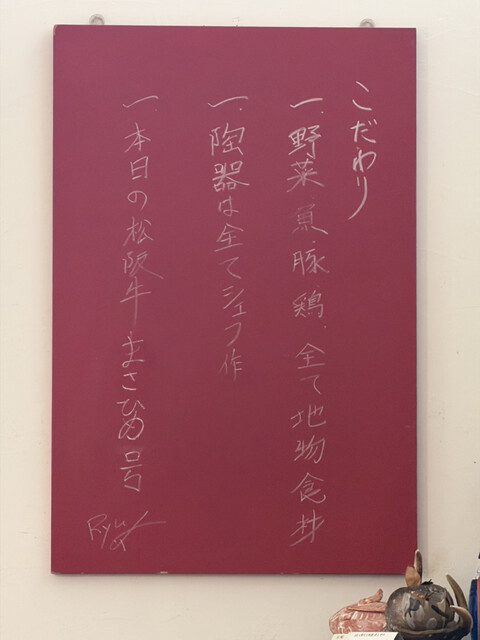 こだわり
一、野菜、魚、豚、鶏、全て地物食材
一、陶器は全てシェフ作
一、本日の松阪牛 まさひめ号
Ryu